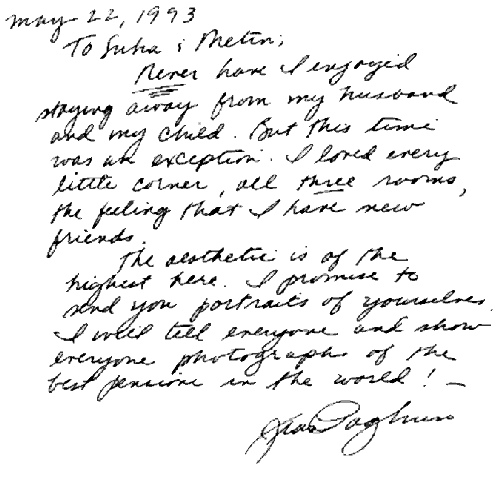 May 22, 1993
To Suha & Metin;
Never have I enjoyed
staying away from my husband
and my child. But this time
was an exception. I loved every
little corner, all three rooms,
the feeling that I have new
friends.
The aesthetic is of the
highest here. I promise to
send you portraits of yourselves.
I will tell everyone and show
everyone photographs of the
best pensione in the world! —